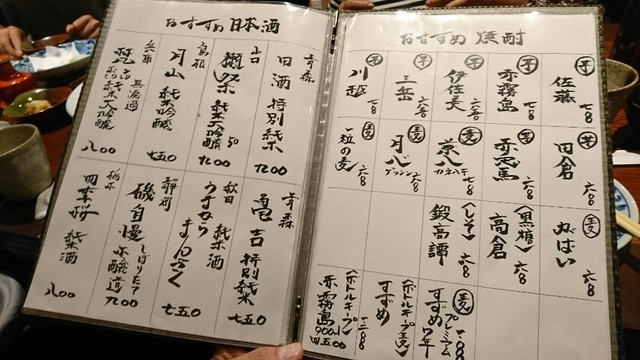 おすすめ 日本酒
青森
田酒 特別純米
九〇〇
山口
獺祭 純米大吟醸 50
九〇〇
島根
月山 純米吟醸
七五〇
兵庫
無濾過
純米大吟醸
八〇〇
青森
亀吉 特別純米
七五〇
秋田
純米酒
うまからまんさく
七五〇
静岡
磯自慢 しぼりたて
本醸造
九〇〇
栃木
四季桜 純米酒
八〇〇
おすすめ 焼酎
芋 佐藤 七八〇
芋 赤霧島 七八〇
芋 伊佐美 六八〇
芋 三岳 六八〇
芋 川越 七八〇
芋 田倉 六八〇
芋 赤兎馬 六八〇
麦 兼八 カネハチ 六八〇
麦 月心 ゲッシン 六八〇
麦 粒の麦 六八〇
麦 のんばい 六八〇
〈黒糖〉
高倉 六八〇
〈しそ〉
鍛高譚 六八〇
麦 プレミアム
すずめ 7年
〈ボトルキープ麦〉
すずめ
〈ボトルキープ〉
赤霧島
900ml
四五〇〇